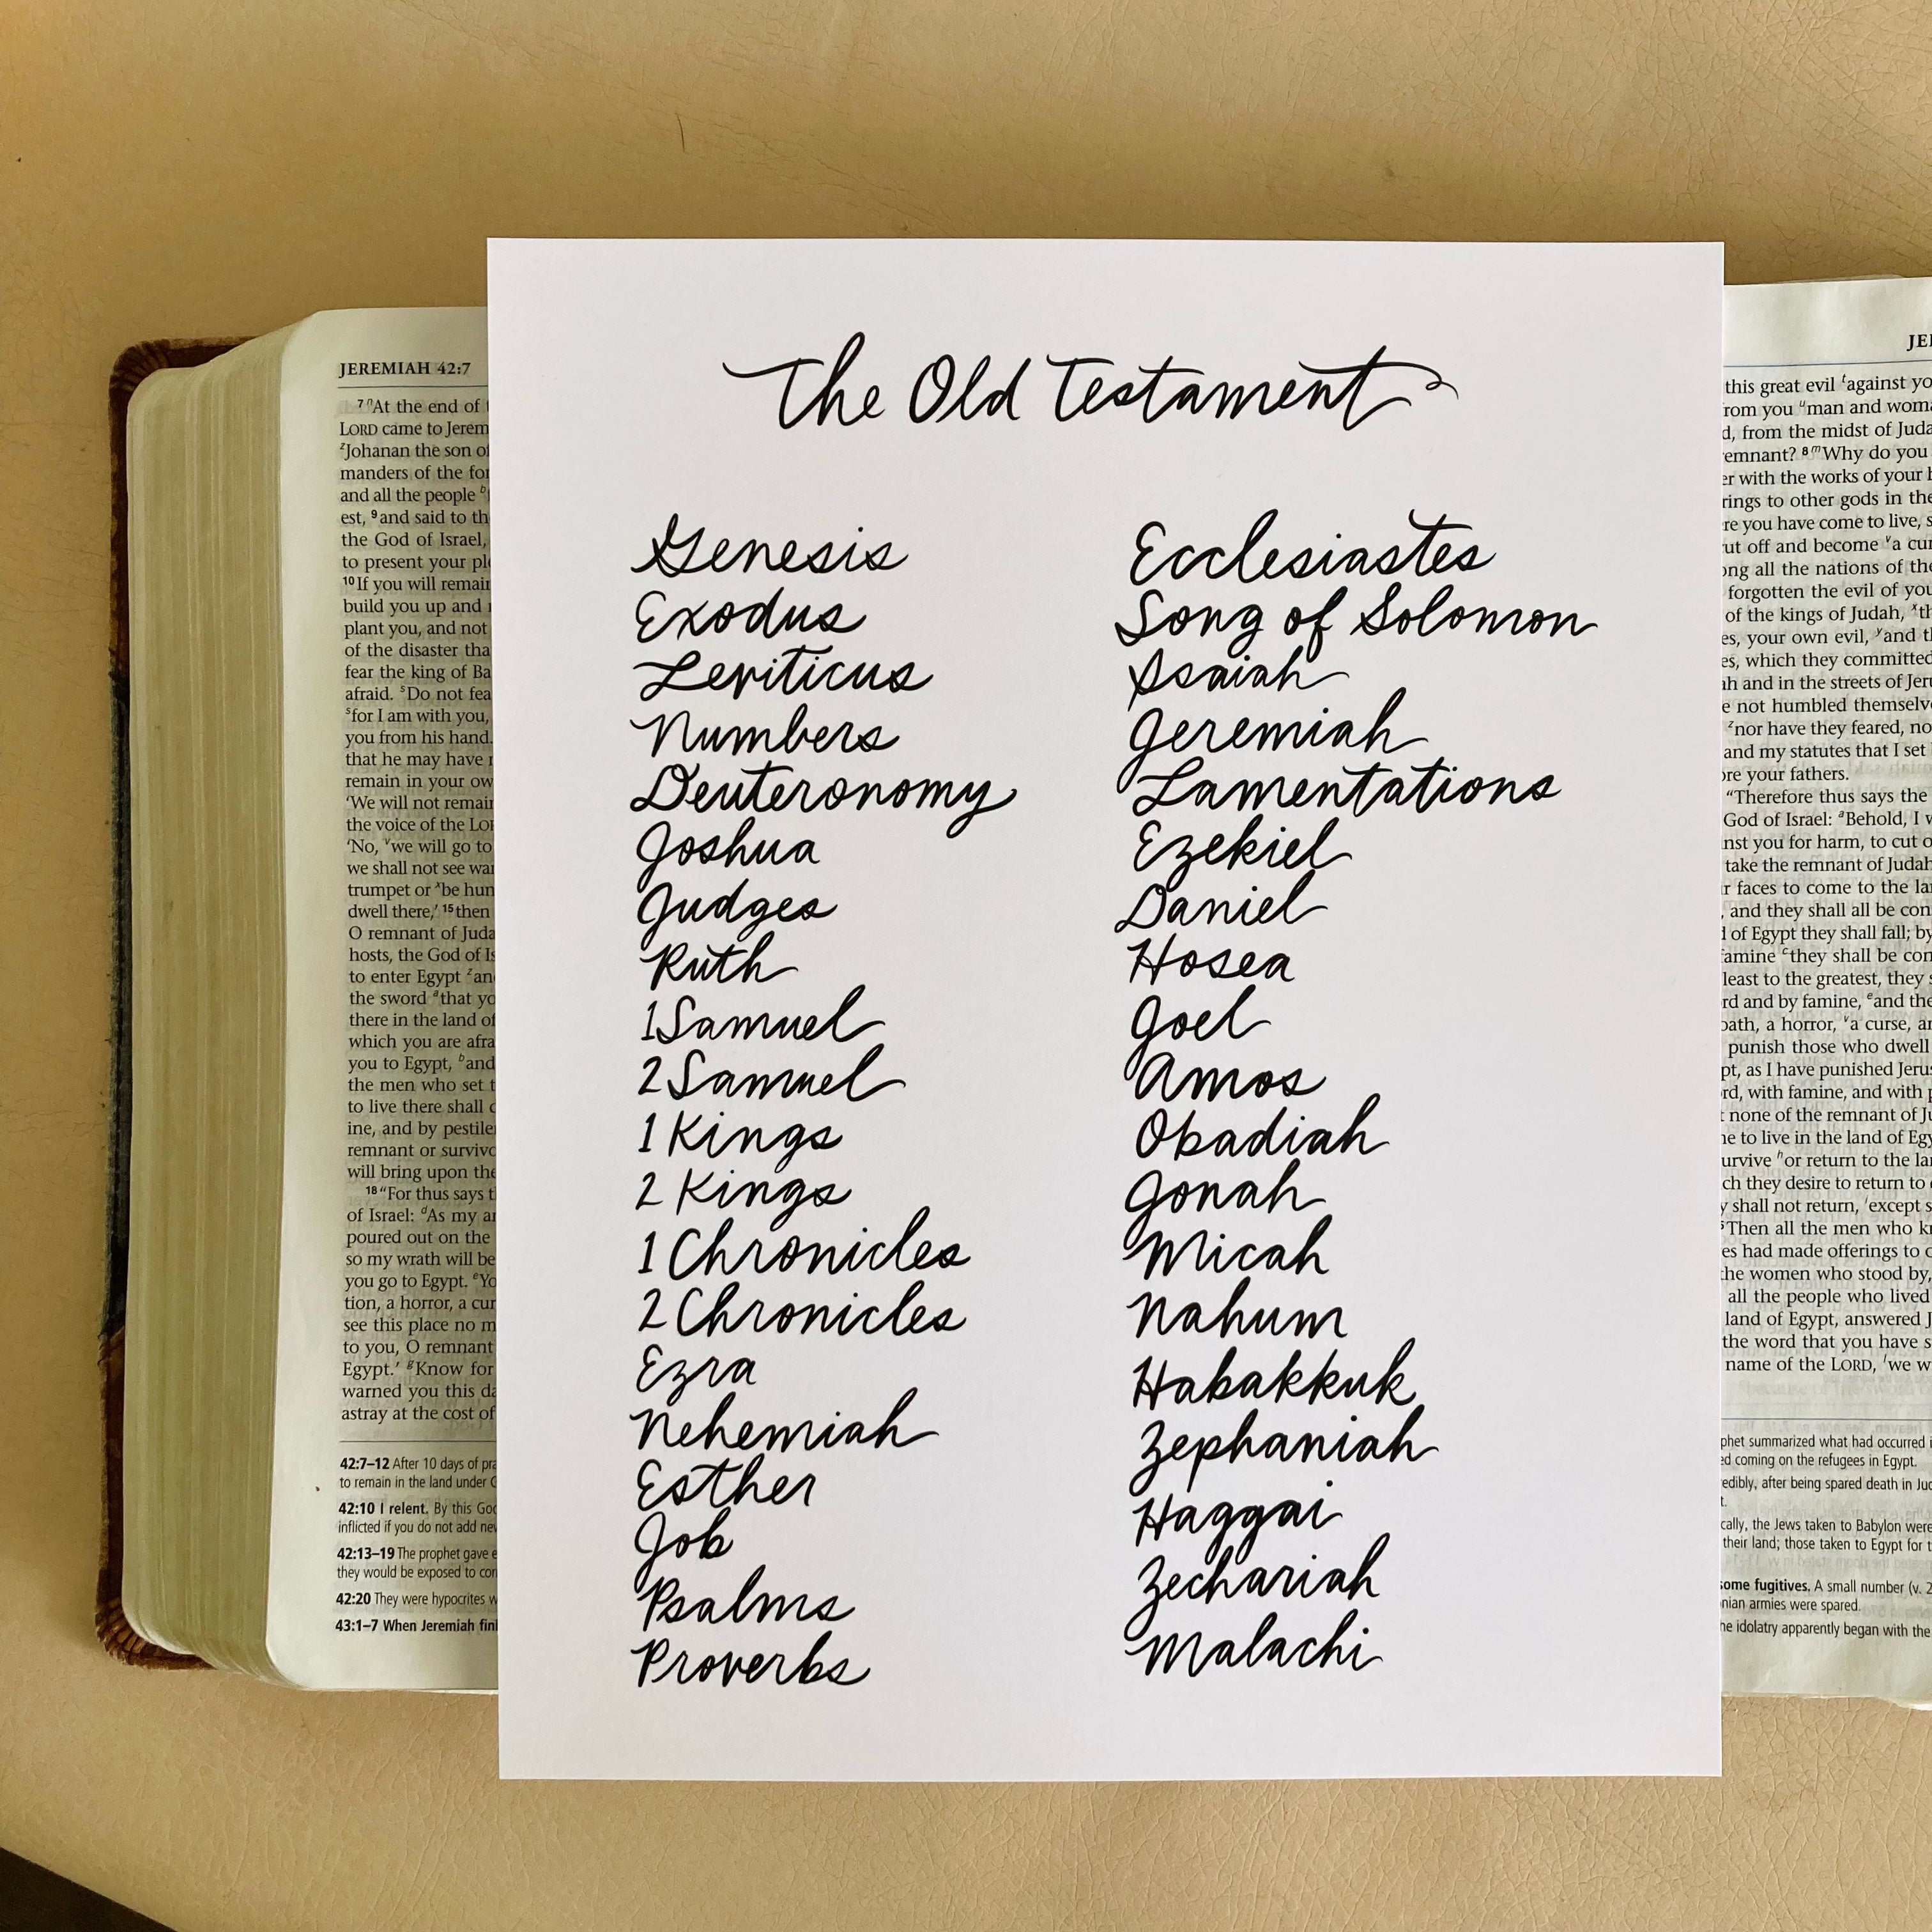 JEREMIAH 42:7
7 n At the end of
LORD came to Jerem
z Johanan the son of
manders of the for
and all the people b
est, 9 and said to th
the God of Israel,
to present your ple
10 If you will remain
build you up and
plant you, and not
of the disaster tha
fear the king of Ba
afraid. s Do not fea
s for I am with you,
you from his hand.
that he may have
remain in your ow
'We will not remain
the voice of the LOR
'No, v we will go to
we shall not see war
trumpet or x be hun
dwell there,' 15 then
O remnant of Juda
hosts, the God of Is
to enter Egypt z an
the sword a that yo
there in the land of
which you are afra
you to Egypt, b and
the men who set t
to live there shall
ine, and by pestile
remnant or survivo
will bring upon the
18 "For thus says t
of Israel: d As my an
poured out on the
so my wrath will be
you go to Egypt. e Yo
tion, a horror, a cur
see this place no m
to you, O remnant
Egypt.' g Know for
warned you this da
astray at the cost of
42:7–12 After 10 days of pra
to remain in the land under G
42:10 I relent. By this God
inflicted if you do not add new
42:13–19 The prophet gave e
they would be exposed to con
42:20 They were hypocrites w
43:1–7 When Jeremiah fini
The Old Testament
Genesis
Exodus
Leviticus
Numbers
Deuteronomy
Joshua
Judges
Ruth
1 Samuel
2 Samuel
1 Kings
2 Kings
1 Chronicles
2 Chronicles
Ezra
Nehemiah
Esther
Job
Psalms
Proverbs
Ecclesiastes
Song of Solomon
Isaiah
Jeremiah
Lamentations
Ezekiel
Daniel
Hosea
Joel
Amos
Obadiah
Jonah
Micah
Nahum
Habakkuk
Zephaniah
Haggai
Zechariah
Malachi
JE
this great evil t against yo
rom you u man and woma
d, from the midst of Juda
remnant? 8 m Why do you
er with the works of your h
rings to other gods in the
re you have come to live, s
ut off and become v a cur
ong all the nations of the
forgotten the evil of you
of the kings of Judah, x th
es, your own evil, y and th
es, which they committed
ah and in the streets of Jeru
e not humbled themselve
z nor have they feared, no
and my statutes that I set
ore your fathers.
"Therefore thus says the
God of Israel: a Behold, I w
inst you for harm, to cut o
take the remnant of Judah
r faces to come to the lan
, and they shall all be con
d of Egypt they shall fall; by
famine c they shall be con
least to the greatest, they s
rd and by famine, e and the
oath, a horror, v a curse, an
punish those who dwell
pt, as I have punished Jerus
rd, with famine, and with p
t none of the remnant of Ju
ne to live in the land of Egy
urvive h or return to the lan
ch they desire to return to
y shall not return, i except s
Then all the men who kn
es had made offerings to o
the women who stood by,
all the people who lived
land of Egypt, answered J
the word that you have s
name of the LORD, l we w
phet summarized what had occurred i
ed coming on the refugees in Egypt.
redibly, after being spared death in Jud
t.
cally, the Jews taken to Babylon were
their land; those taken to Egypt for t
some fugitives. A small number (v. 2
nian armies were spared.
he idolatry apparently began with the